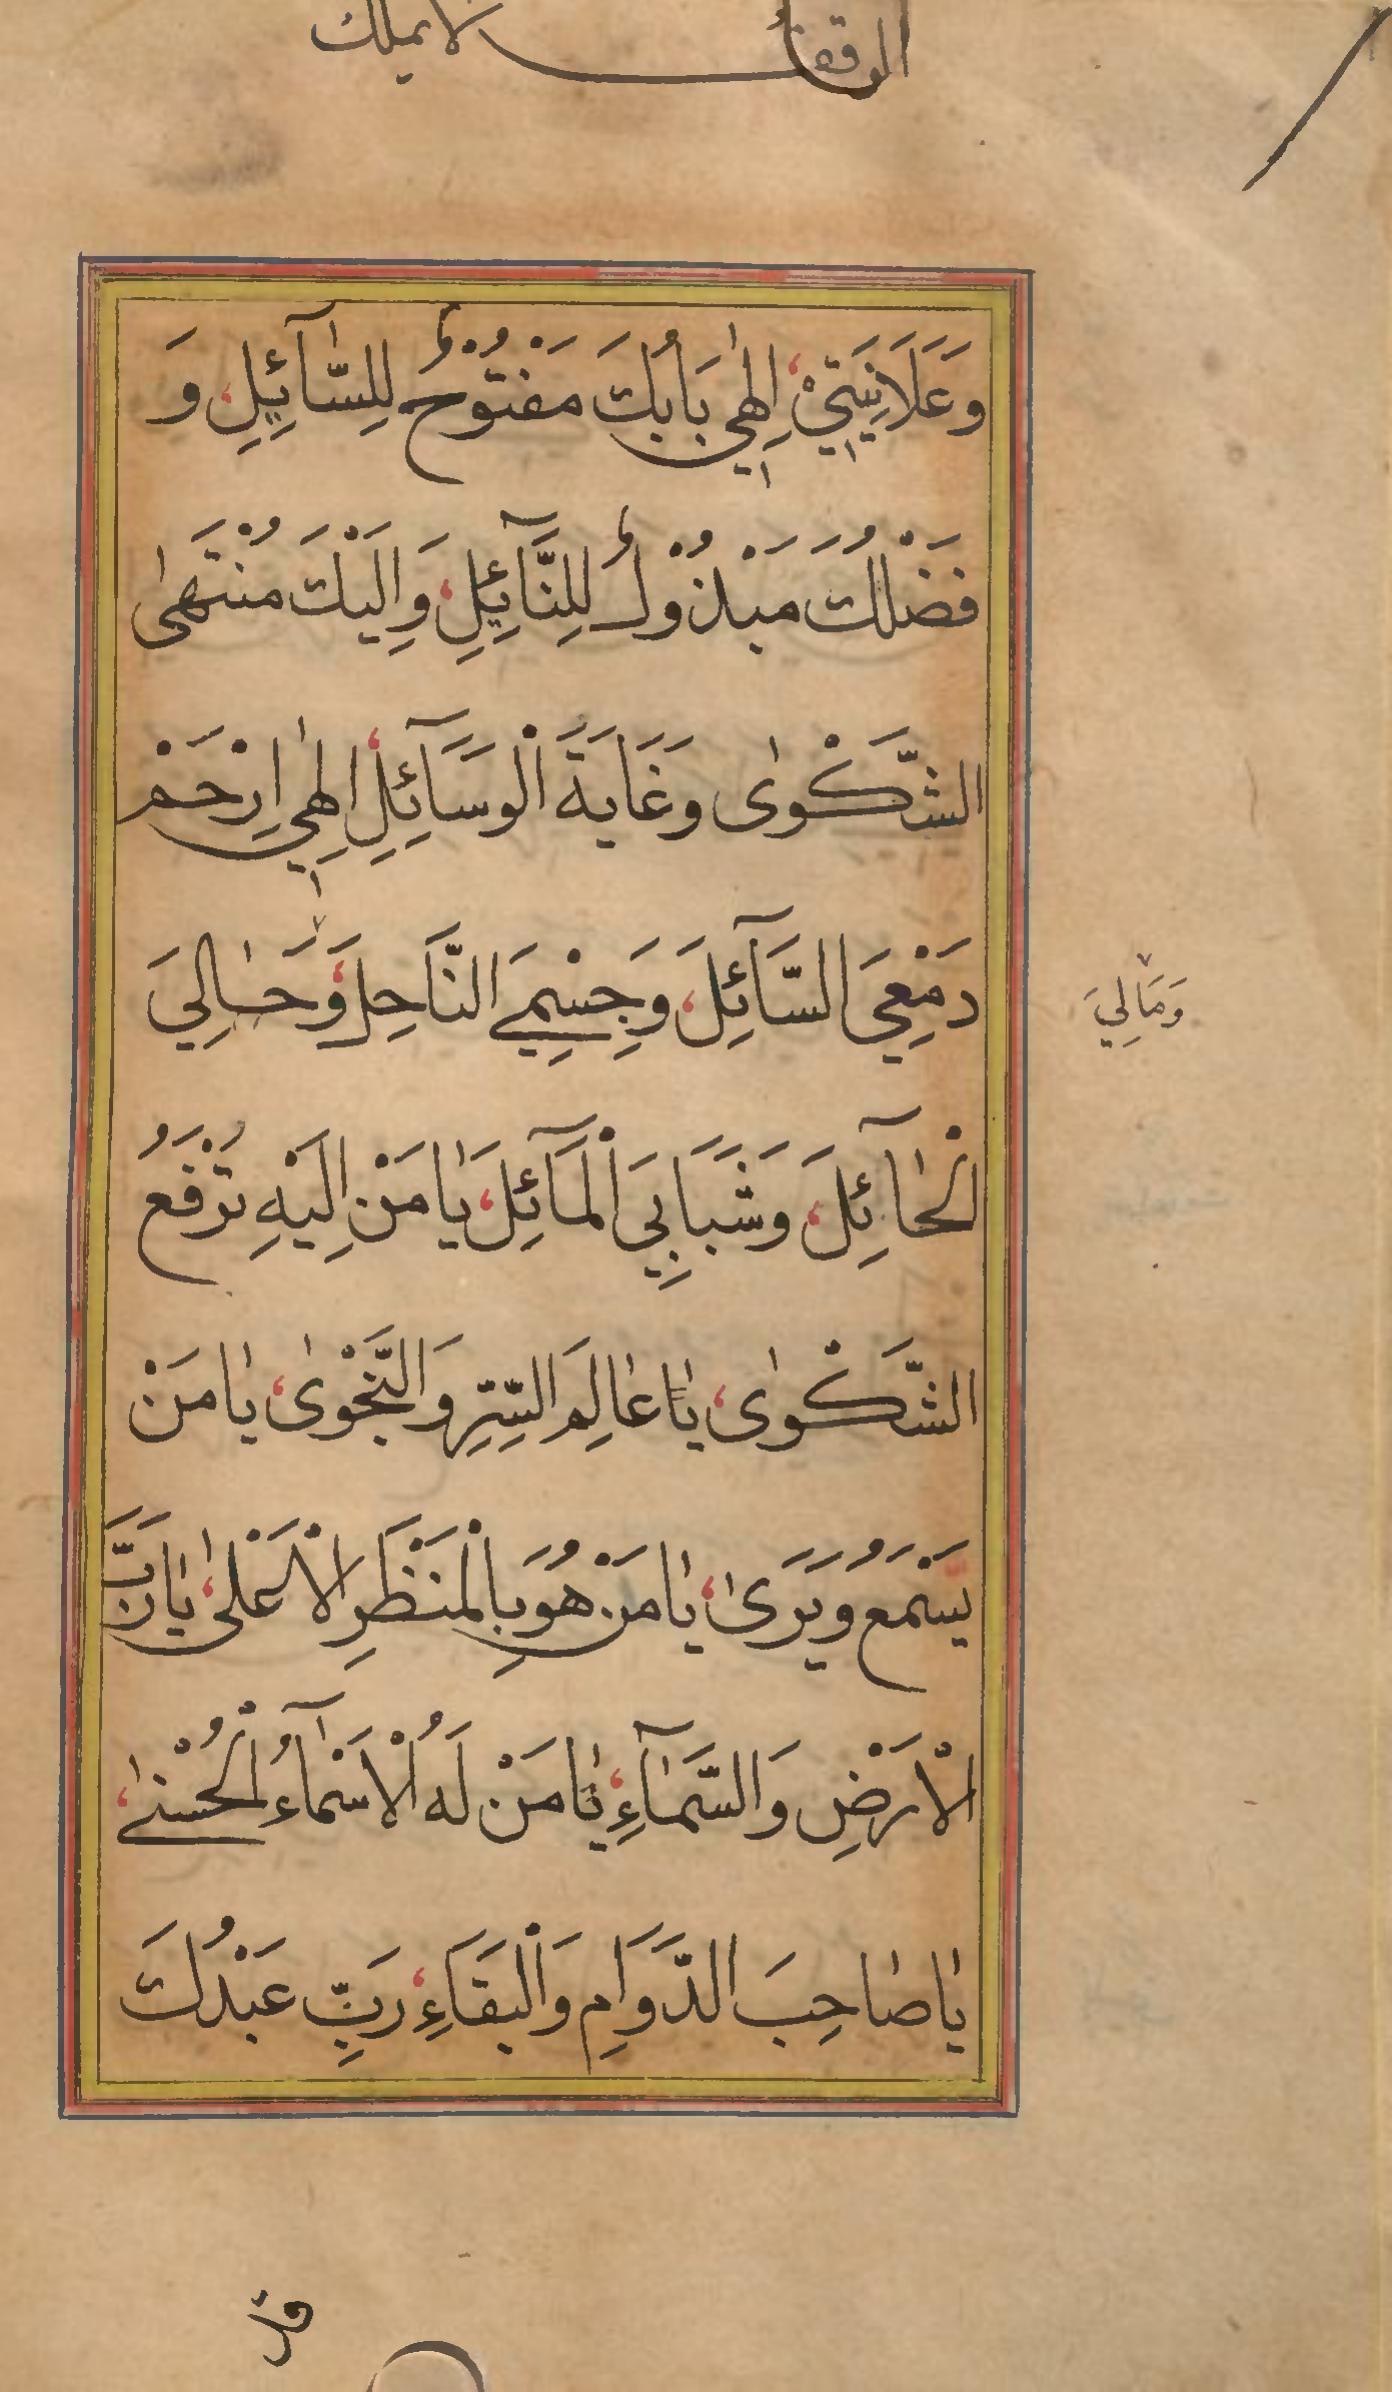 الوقف لا يملك
وَعَلَانِيَتِيْ، اِلٰهِي بَابُكَ مَفْتُوْحٌ لِلسَّآئِلِ، وَ
فَضْلُكَ مَبْذُوْلٌ لِلنَّآئِلِ، وَاِلَيْكَ مُنْتَهٰى
الشَّكْوٰى وَغَايَةَ الْوَسَآئِلِ، اِلٰهِي اِرْحَمْ
دَمْعِيَ السَّآئِلَ، وَجِسْمِيَ النَّاحِلَ، وَحَالِيَ
وَمَالِيَ
الْحَآئِلَ، وَشَبَابِيَ الْمَآئِلَ، يٰا مَنْ اِلَيْهِ تُرْفَعُ
الشَّكْوٰى، يٰا عٰالِمَ السِّرِّ وَالنَّجْوٰى، يٰا مَنْ
يَسْمَعُ وَيَرَىٰ، يٰا مَنْ هُوَ بِالْمَنْظَرِ الْاَعْلىٰ، يٰا رَبَّ
الْاَرْضِ وَالسَّمٰآءِ، يٰا مَنْ لَهُ الْاَسْمٰآءُ الْحُسْنىٰ،
يٰا صٰاحِبَ الدَّوَامِ وَالْبَقَاءِ، رَبِّ عَبْدُكَ